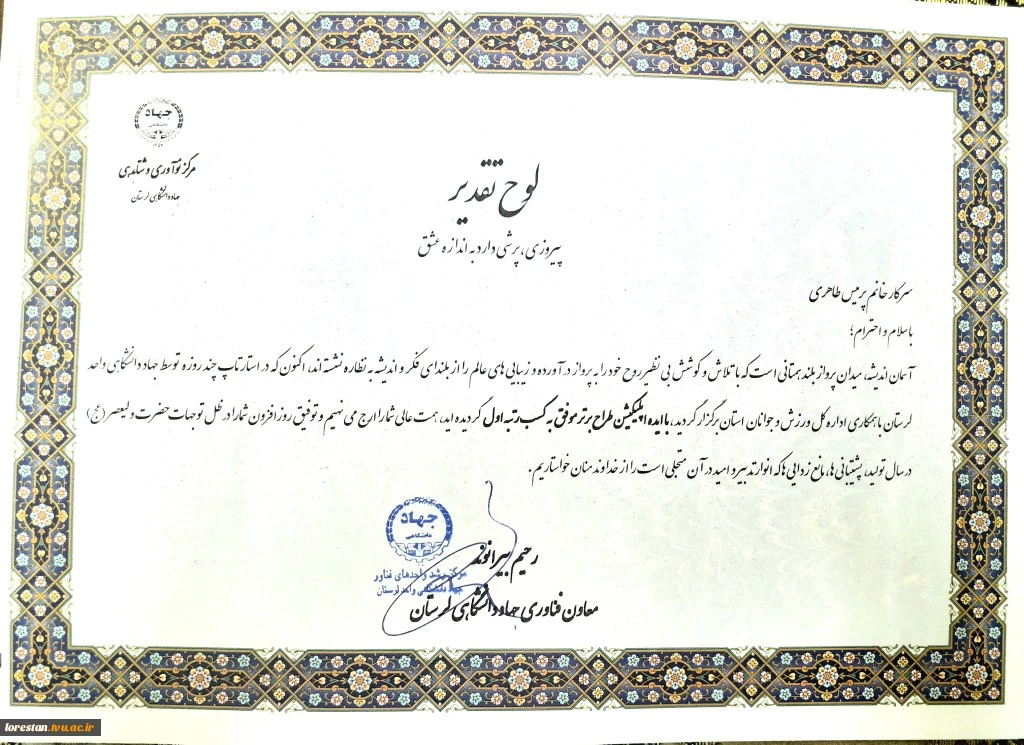 جهاد
دانشگاهی
۱۳۵۹
مرکز نوآوری و شتابدهی
جهاد دانشگاهی لرستان
لوح تقدیر
پیروزی، پرشی دارد به اندازه عشق
سرکار خانم پرمیس طاهری
با سلام و احترام؛
آسمان اندیشه، میدان پرواز بلند همتانی است که با تلاش و کوشش بی نظیر روح خود را به پرواز در آورده و زیبایی های عالم را از بلندای فکر و اندیشه به نظاره نشسته اند، اکنون که در استارتاپ چند روزه توسط جهاد دانشگاهی واحد
لرستان با همکاری اداره کل ورزش و جوانان استان برگزار گردید، با ایده اپلیکیشن طراح برتر موفق به کسب رتبه اول گردیده اید، همت عالی شما را ارج می نهیم و توفیق روز افزون شما را در ظل توجهات حضرت ولیعصر (عج)
در سال تولید، پشتیبانی ها، مانع زدایی ها که انوار تدبیر و امید در آن متجلی است را از خداوند منان خواستاریم.
جهاد
دانشگاهی
رحیم بیرانوند
مرکز رشد واحدهای فناور
جهاد دانشگاهی واحد لرستان
معاون فناوری جهاد دانشگاهی لرستان
lorestan.tvu.ac.ir